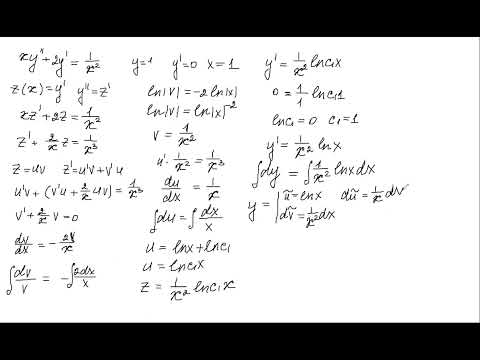 xy'' + 2y' = 1/x²
z(x) = y' y'' = z'
xz' + 2z = 1/x²
z' + 2/x z = 1/x³
z = uv z' = u'v + v'u
u'v + (v'u + 2/x uv) = 1/x³
v' + 2/x v = 0
dv/dx = - 2v/x
∫ dv/v = - ∫ 2dx/x
y = 1 y' = 0 x = 1
ln|v| = -2ln|x|
ln|v| = ln|x|⁻²
v = 1/x²
u' · 1/x² = 1/x³
du/dx = 1/x
∫ du = ∫ dx/x
u = lnx + lnc₁
u = lnc₁x
z = 1/x² lnc₁x
y' = 1/x² lnc₁x
0 = 1/1 lnc₁1
lnc₁ = 0 c₁ = 1
y' = 1/x² lnx
∫ dy = ∫ 1/x² lnxdx
y = | ũ = lnx dũ = 1/x
dṽ = 1/x² dx